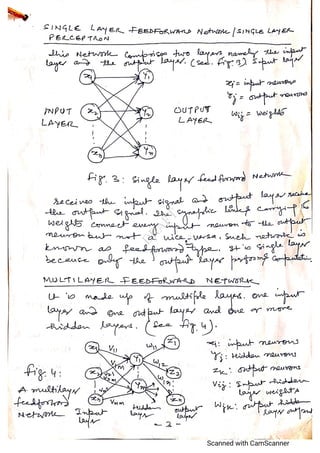 SINGLE LAYER FEEDFORWARD NETWORK/SINGLE LAYER
PERCEPTRON
This Network comprises two layers namely the input
layer and the output layer. (see. Fig. 3) Input layer
x1 Y1
xi = input neurons
Yj = output neurons
INPUT x2 Y2 OUTPUT
LAYER LAYER
Wij = Weights
xn Yn
Fig. 3: Single layer feed forward Network
receives the input signal and output layer receive
the output signal. The synaptic links carrying
weights connect every input neuron to the output
neuron but not a vice-versa. Such network is
known as feedforward type. It is single layer
because only the output layer performs computation.
MULTILAYER FEEDFORWARD NETWORK
It is made up of multiple layers. one input
layer and one output layer and one or more
hidden layers. (See Fig. 4).
Fig. 4:
A multilayer
feedforward
Network
x1 V11 Y1 W11 Z1
Z2
Ym
Input
layer
Hidden
layer
output
layer
xi: input neurons
Yj: Hidden neurons
Zk: output neurons
Vij: Input hidden
layer weights
Wjk: output hidden
layer
- 2 -
Scanned with CamScanner